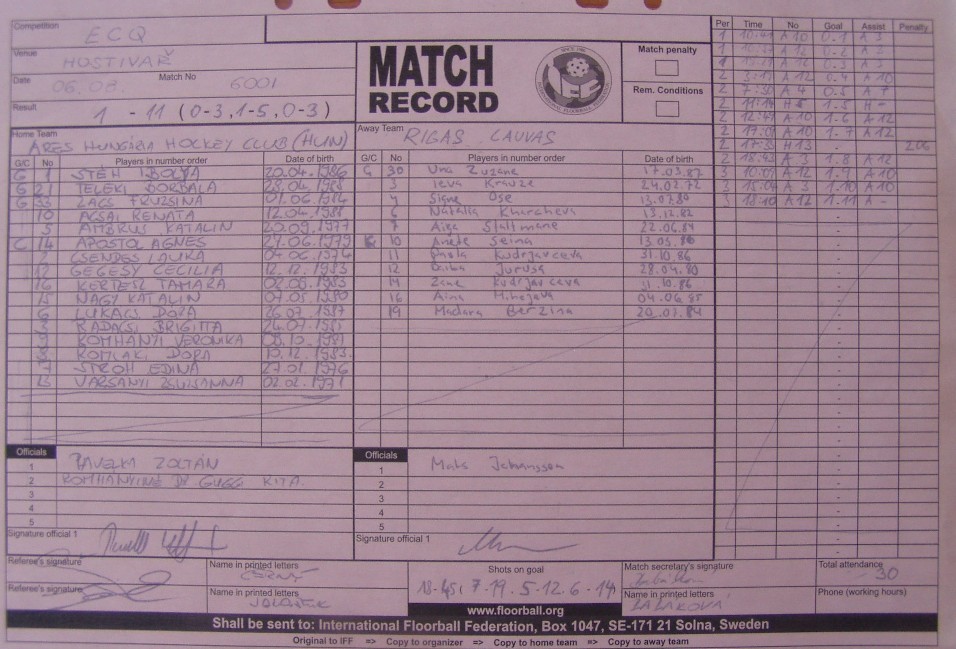 Competition ECQ
Venue HOSTIVAŘ
Date 06.08. Match No 6001
Result 1 - 11 (0-3,1-5,0-3)
MATCH
RECORD
SINCE 1986
IFF
Match penalty
Rem. Conditions
Home Team ARES HUNGÁRIA HOCKEY CLUB (HUN)
Away Team RIGAS LAUVAS
G/C No Players in number order Date of birth
G 1 STÉH IBOLYA 20.04.1986
G 21 TELEKI BORBÁLA
G 33
10 RENATA 12.04.1988
5 AMBRUS KATALIN 20.09.1977
C 14 APOSTOL AGNES 27.06.1979
2 CSENDES LAURA 04.06.1974
12 GEGESY CECILIA 12.12.1983
16 KERTESZ TAMARA 02.06.1983
15 NAGY KATALIN 07.05.1980
6 LUKACS DORA 26.07.1987
3 RADACSI BRIGITTA 24.07.1981
9 KOMHANYI VERONIKA 08.10.1981
8 KOMLAKI DORA 10.12.1983.
7 STROH EDINA 27.01.1976
13 VARSANYI ZSUZSANNA 02.02.1971
G/C No Players in number order Date of birth
G 30 Una Zuzane 17.03.87
3 Ieva Krauze 24.02.72
4 Signe Ose 13.07.80
6 Natalia Kharcheva 13.12.82
7 Aiga Stallmane 22.06.84
10 Anete Seina 13.05.86
11 Paula Kudrjavceva 31.10.86
12 Baiba Jurusa 28.04.80
14 Zane Kudrjavceva 31.10.86
16 Aina Mihejeva 04.06.85
19 Madara Berzina 20.07.84
Per Time No Goal Assist Penalty
1 10:41 A 10 0-1 A 3
1 A 12 0-2 A 3
1 A 12 0-3 A 3
2 3:17 A 12 0-4 A 10
2 7:31 A 4 0-5 A 7
2 11:14 H 5 1-5 H -
2 12:47 A 10 1-6 A 12
2 17:01 A 10 1-7 A 12
2 17:33 H 13 - 206
2 18:43 A 3 1-8 A 12
3 10:07 A 12 1-9 A 10
3 15:04 A 3 1-10 A 10
3 18:10 A 12 1-11 A -
Officials
1 ZOLTÁN
2
3
4
5
Signature official 1
Officials
1 Mats Johansson
2
3
4
5
Signature official 1
Referee's signature
Name in printed letters ČERNÝ
Referee's signature
Name in printed letters
Shots on goal
18-45, 7-19, 5-12, 6-14
www.floorball.org
Match secretary's signature
Name in printed letters
Total attendance 30
Phone (working hours)
Shall be sent to: International Floorball Federation, Box 1047, SE-171 21 Solna, Sweden
Original to IFF => Copy to organizer => Copy to home team => Copy to away team